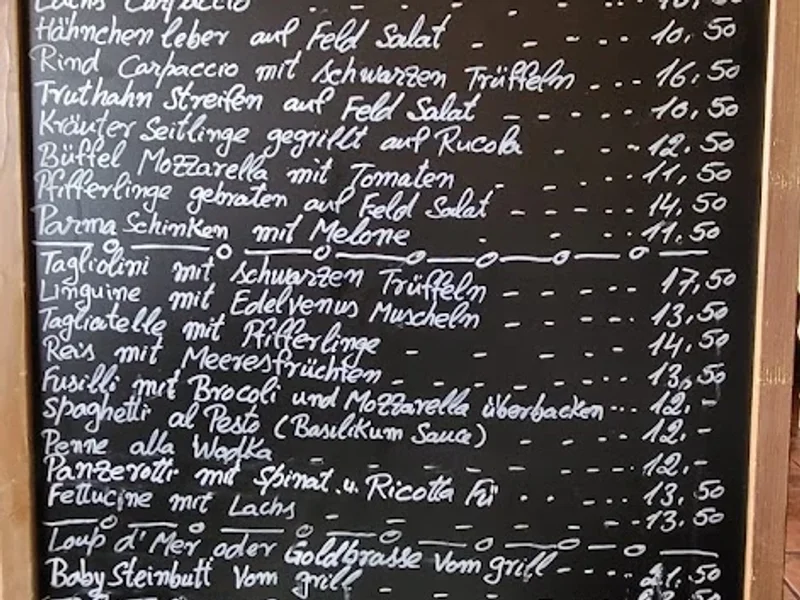 Lachs Carpaccio - - - - - - 10,50
Hähnchenleber auf Feld Salat - - - - - 10,50
Rind Carpaccio mit schwarzen Trüffeln - - - - 16,50
Truthahn Streifen auf Feld Salat - - - - - - 10,50
Kräuter Seitlinge gegrillt auf Rucola - - - - 12,50
Büffel Mozzarella mit Tomaten - - - - - 11,50
Pfifferlinge gebraten auf Feld Salat - - - - - - 14,50
Parma Schinken mit Melone - - - - 11,50
Tagliolini mit schwarzen Trüffeln - - - - - - 17,50
Linguine mit Edelvenus Muscheln - - - - - 13,50
Tagliatelle mit Pfifferlinge - - - - - 14,50
Reis mit Meeresfrüchten - - - - - - - 13,50
Fusilli mit Brocoli und Mozzarella überbacken - - - 12,-
Spaghetti al Pesto (Basilikum Sauce) - - - - - 12,-
Penne alla Wodka - - - - - - 12,-
Panzerotti mit Spinat u. Ricotta - - - - - 13,50
Fettucine mit Lachs - - - - - - 13,50
Loup d'Mer oder Goldbrasse vom grill - - - - 21,50
Baby Steinbutt vom grill - - - - - -